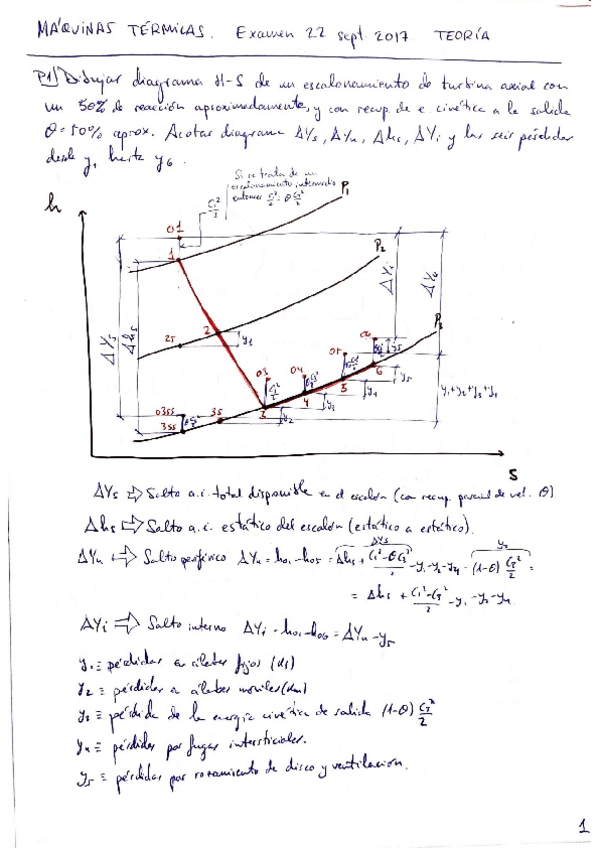 MÁQUINAS TÉRMICAS. Examen 22 sept. 2017 TEORÍA
P1) Dibujar diagrama H-S de un escalonamiento de turbina axial con
un 50% de reacción aproximadamente, y con recup. de e. cinética a la salida
θ=50% aprox. Acotar diagrama ΔYs, ΔYu, Δhs, ΔYi y las seis pérdidas
desde y1 hasta y6.
Si se trata de un
escalonamiento intermedio
entonces
h
P1
01
1
P2
2s
2
y1
P3
ΔYs
Δhs
ΔYi
ΔYu
03
04
05
06
03ss
3ss
3s
3
4
5
6
y2
y3
y4
y5
y1+y2+y3+y4
S
ΔYs ⇒ Salto a.i. total disponible en el escalón (con recup. parcial de vel. θ)
Δhs ⇒ Salto a.i. estático del escalón (estático a estático).
ΔYu ⇒ Salto periférico ΔYu = h01-h05 = Δhs + (C1²-θC3²)/2 - y1-y2-y4 - (1-θ) C3²/2 =
= Δhs + (C1²-C3²)/2 - y1-y2-y4
ΔYi ⇒ Salto interno ΔYi = h01-h06 = ΔYu-y5
y1 ≡ pérdidas en álabes fijos
y2 ≡ pérdidas en álabes móviles
y3 ≡ pérdida de la energía cinética de salida (1-θ) C3²/2
y4 ≡ pérdidas por fugas intersticiales.
y5 ≡ pérdidas por rozamiento de disco y ventilación.
1